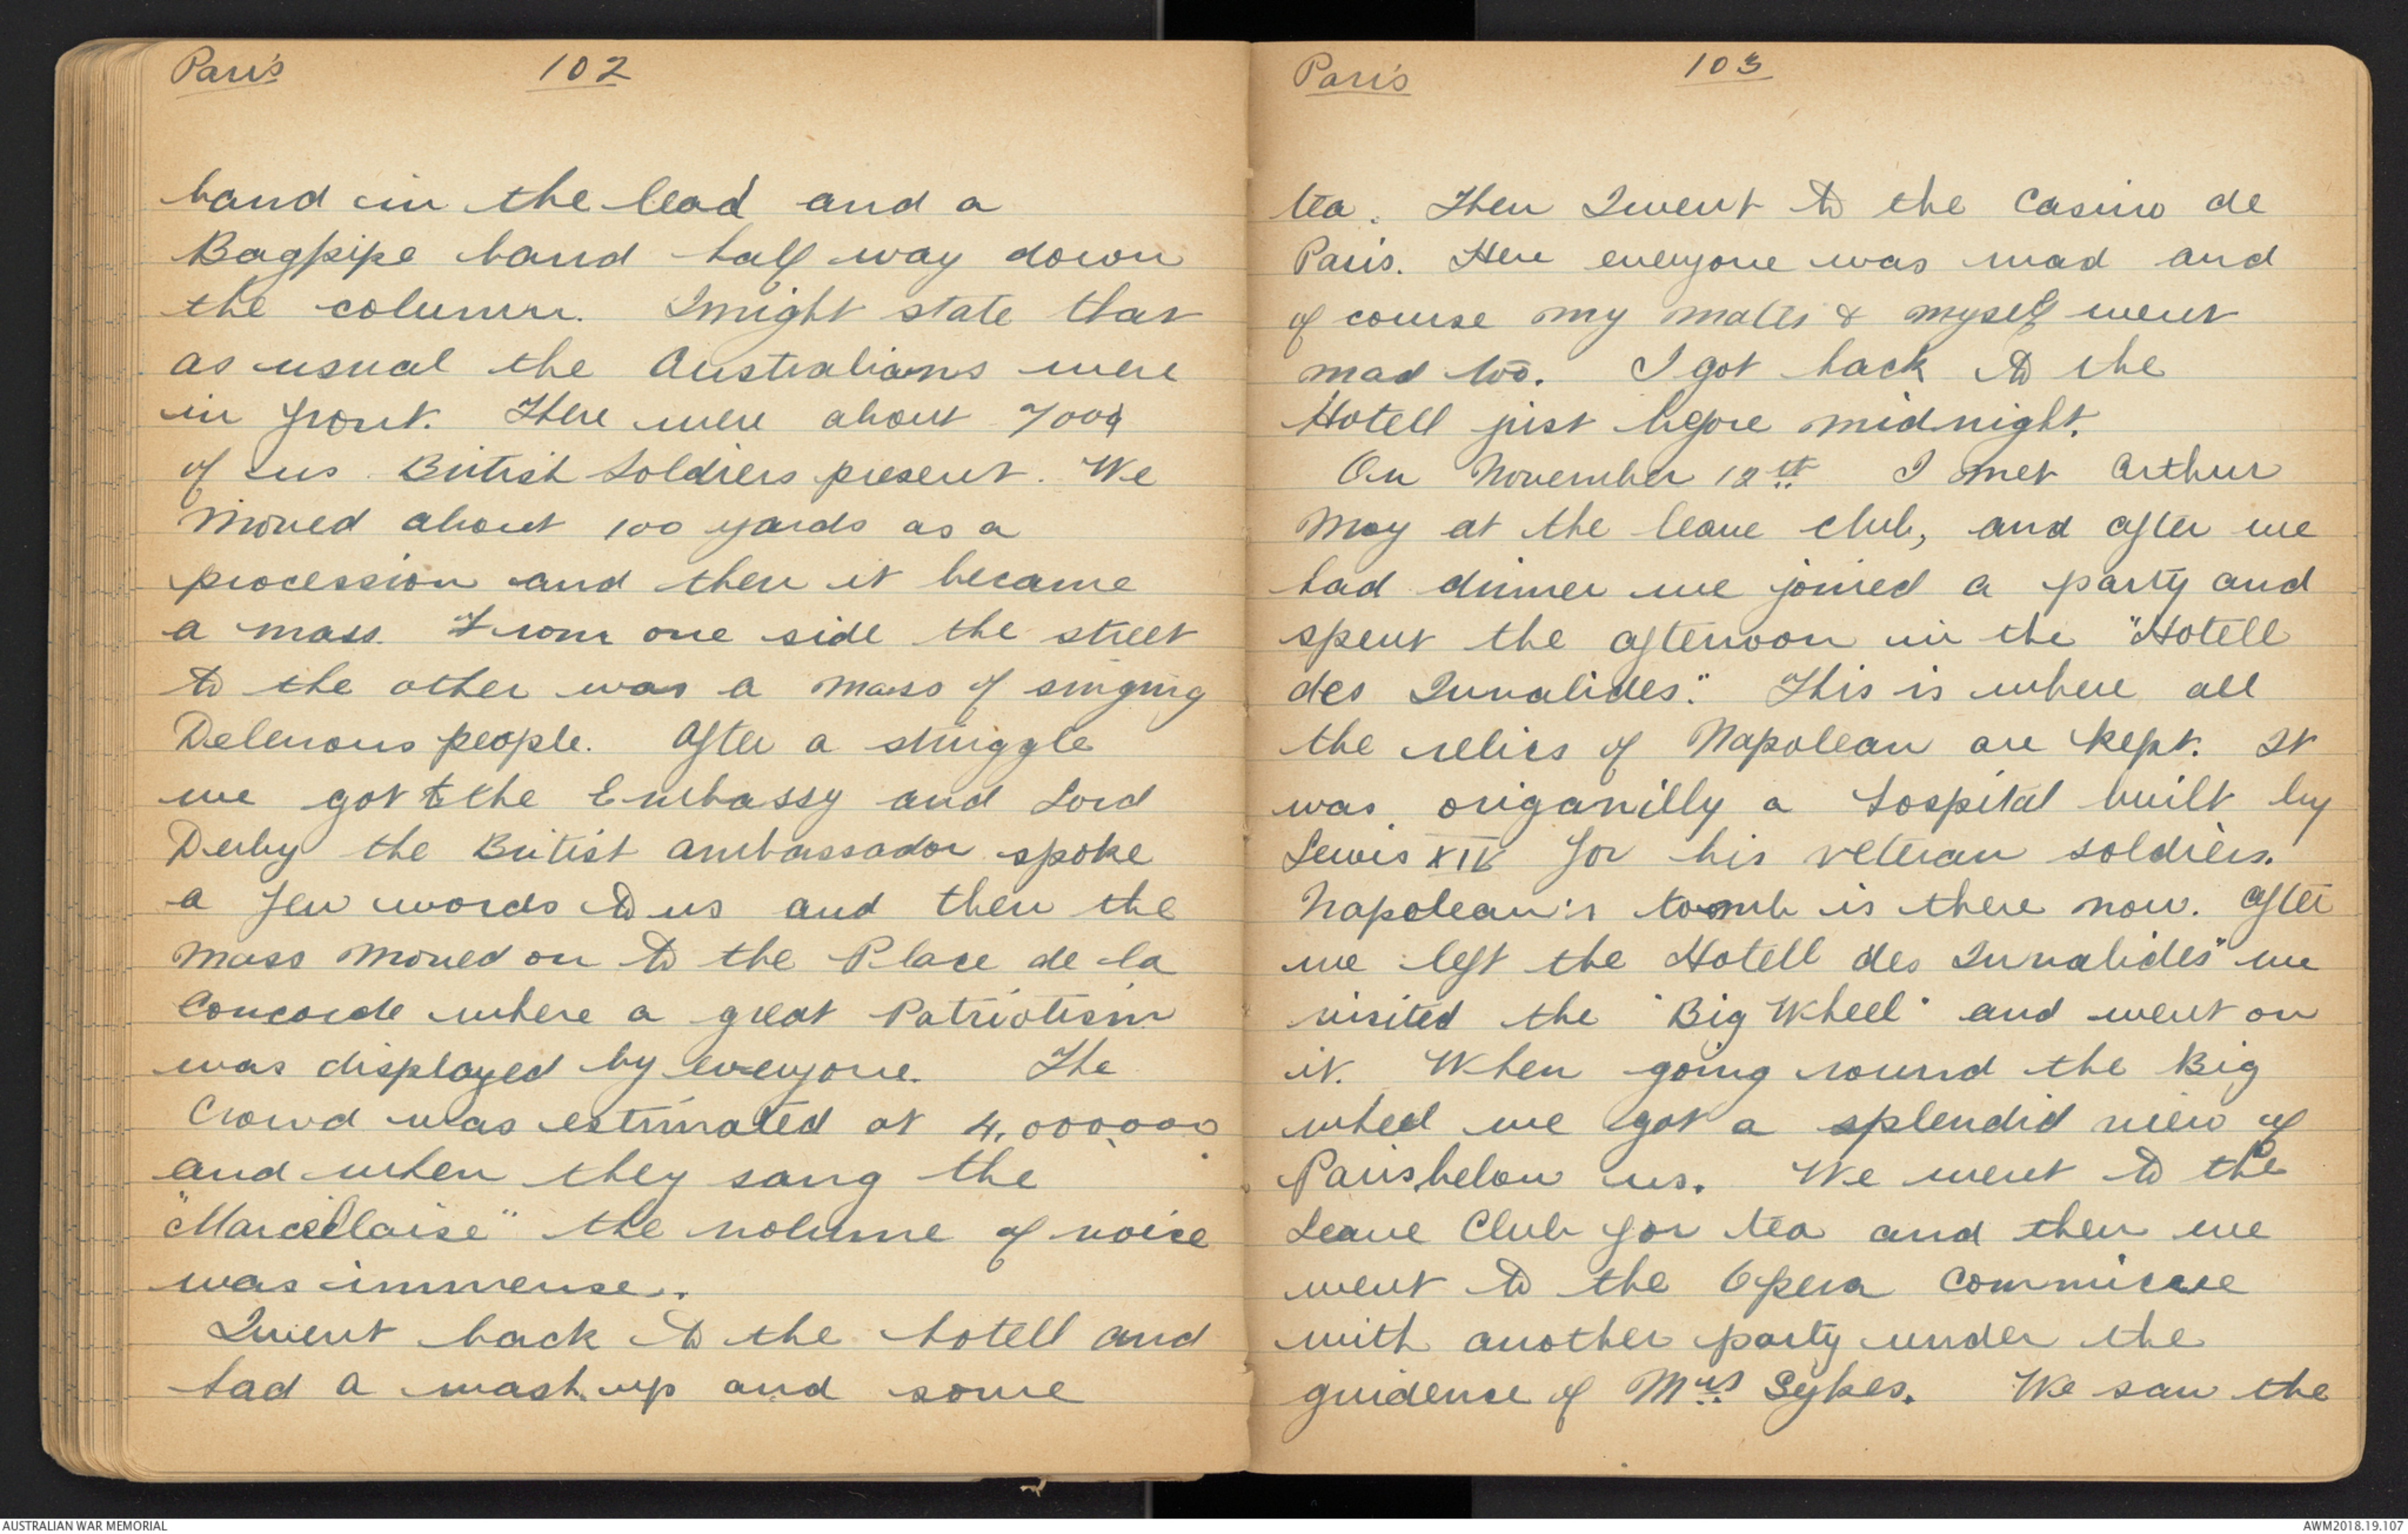 Paris 102
band in the lead and a
Bagpipe band half way down
the column. I might state that
as usual the Australians were
in front. There were about 7000
of us British Soldiers present. We
moved about 100 yards as a
procession and then it became
a mass. From one side the street
to the other was a mass of singing
Delerious people. After a struggle
we got to the Embassy and Lord
Derby the British ambassador spoke
a few words to us and then the
mass moved on to the Place de la
Concorde where a great Patriotism
was displayed by everyone. The
Crowd was estimated at 4,000,000
and when they sang the
"Marcellaise" the volume of noise
was immense.
I went back to the hotell and
had a wash up and some
Paris 103
tea. Then I went to the Casino de
Paris. Here everyone was mad and
of course my mates & myself went
mad too. I got back to the
Hotell just before midnight.
On November 12th I met Arthur
May at the leave club, and after we
had dinner we joined a party and
spent the afternoon in the "Hotell
des Invalides". This is where all
the relics of Napolean are kept. It
was origanilly a hospital built by
Lewis XIV for his veteran soldiers.
Napolean's tomb is there now. After
we left the Hotell des Invalides" we
visited the "Big Wheel" and went on
it. When going round the Big
wheel we got a splendid view of
Paris below us. We went to the
Leave Club for tea and then we
went to the Opera Commicce
with another party under the
guidense of Mrs Sykes. We saw the
AUSTRALIAN WAR MEMORIAL
AWM2018.19.107